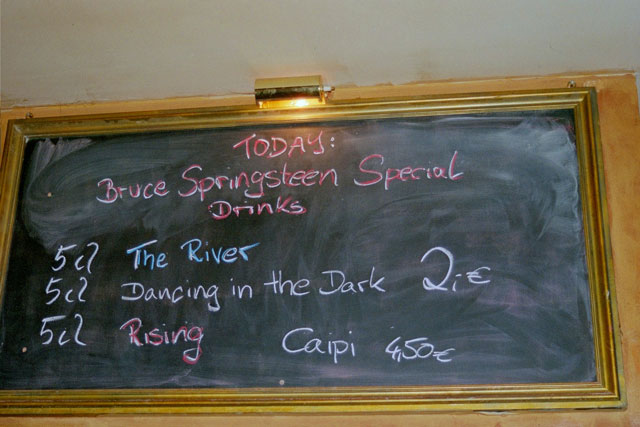 TODAY:
Bruce Springsteen Special
Drinks
5cl The River
5cl Dancing in the Dark 2,-€
5cl Rising Caipi 4,50€